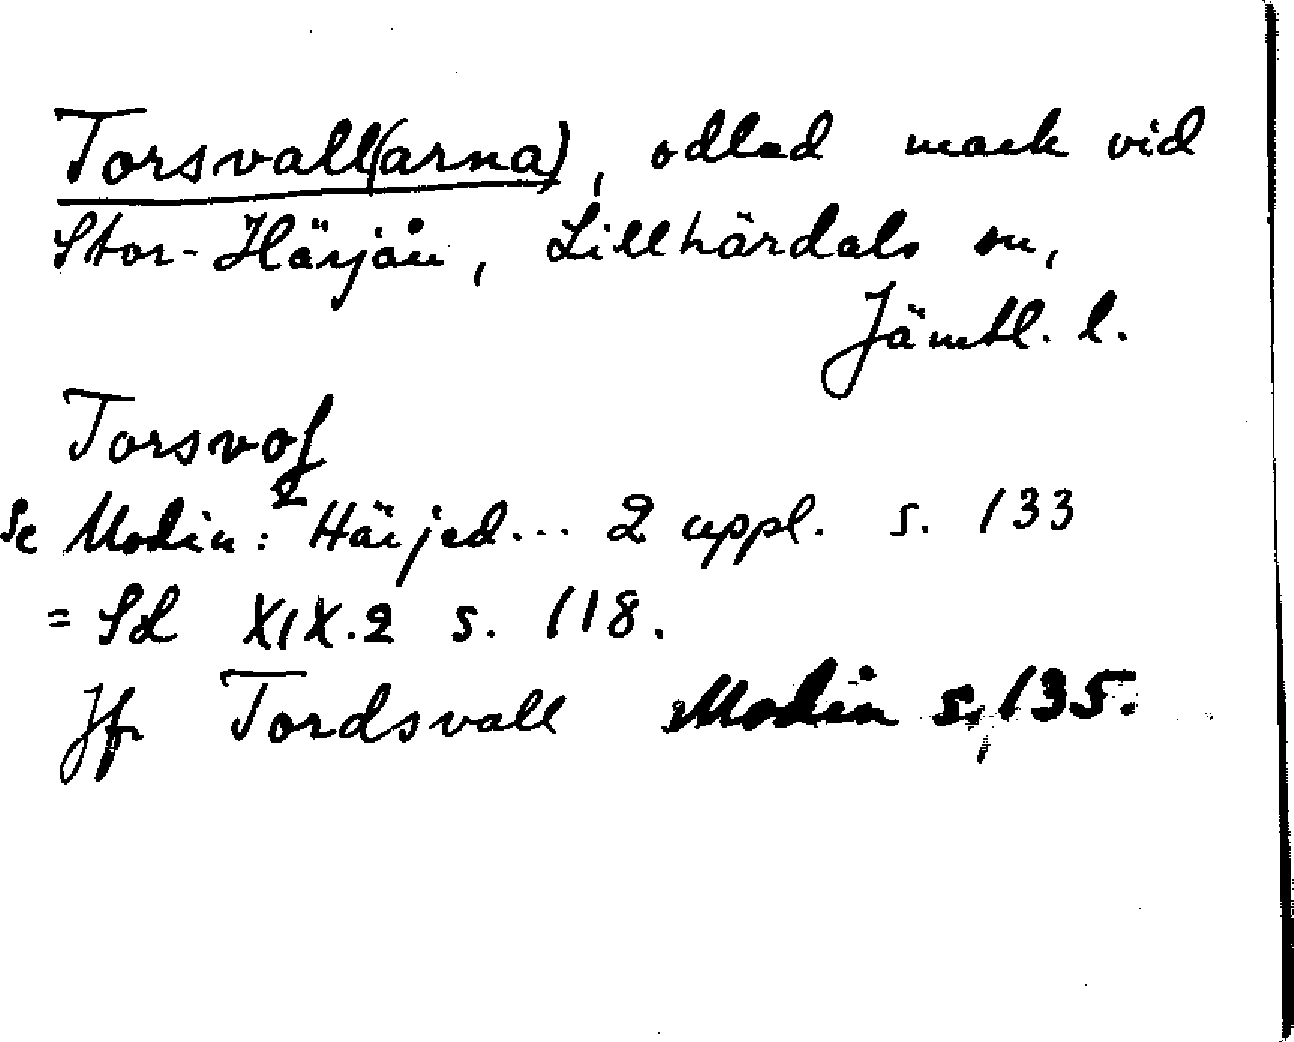 Torsvall(arna), odlad mark vid
Stor-Härjån, Lillhärdals sn,
Jämtl. l.
Torsvol
Se Modin: Härjed... 2 uppl. s. 133
= SL XIX.2 s. 118.
Jfr Tordsvall Modin s. 135.